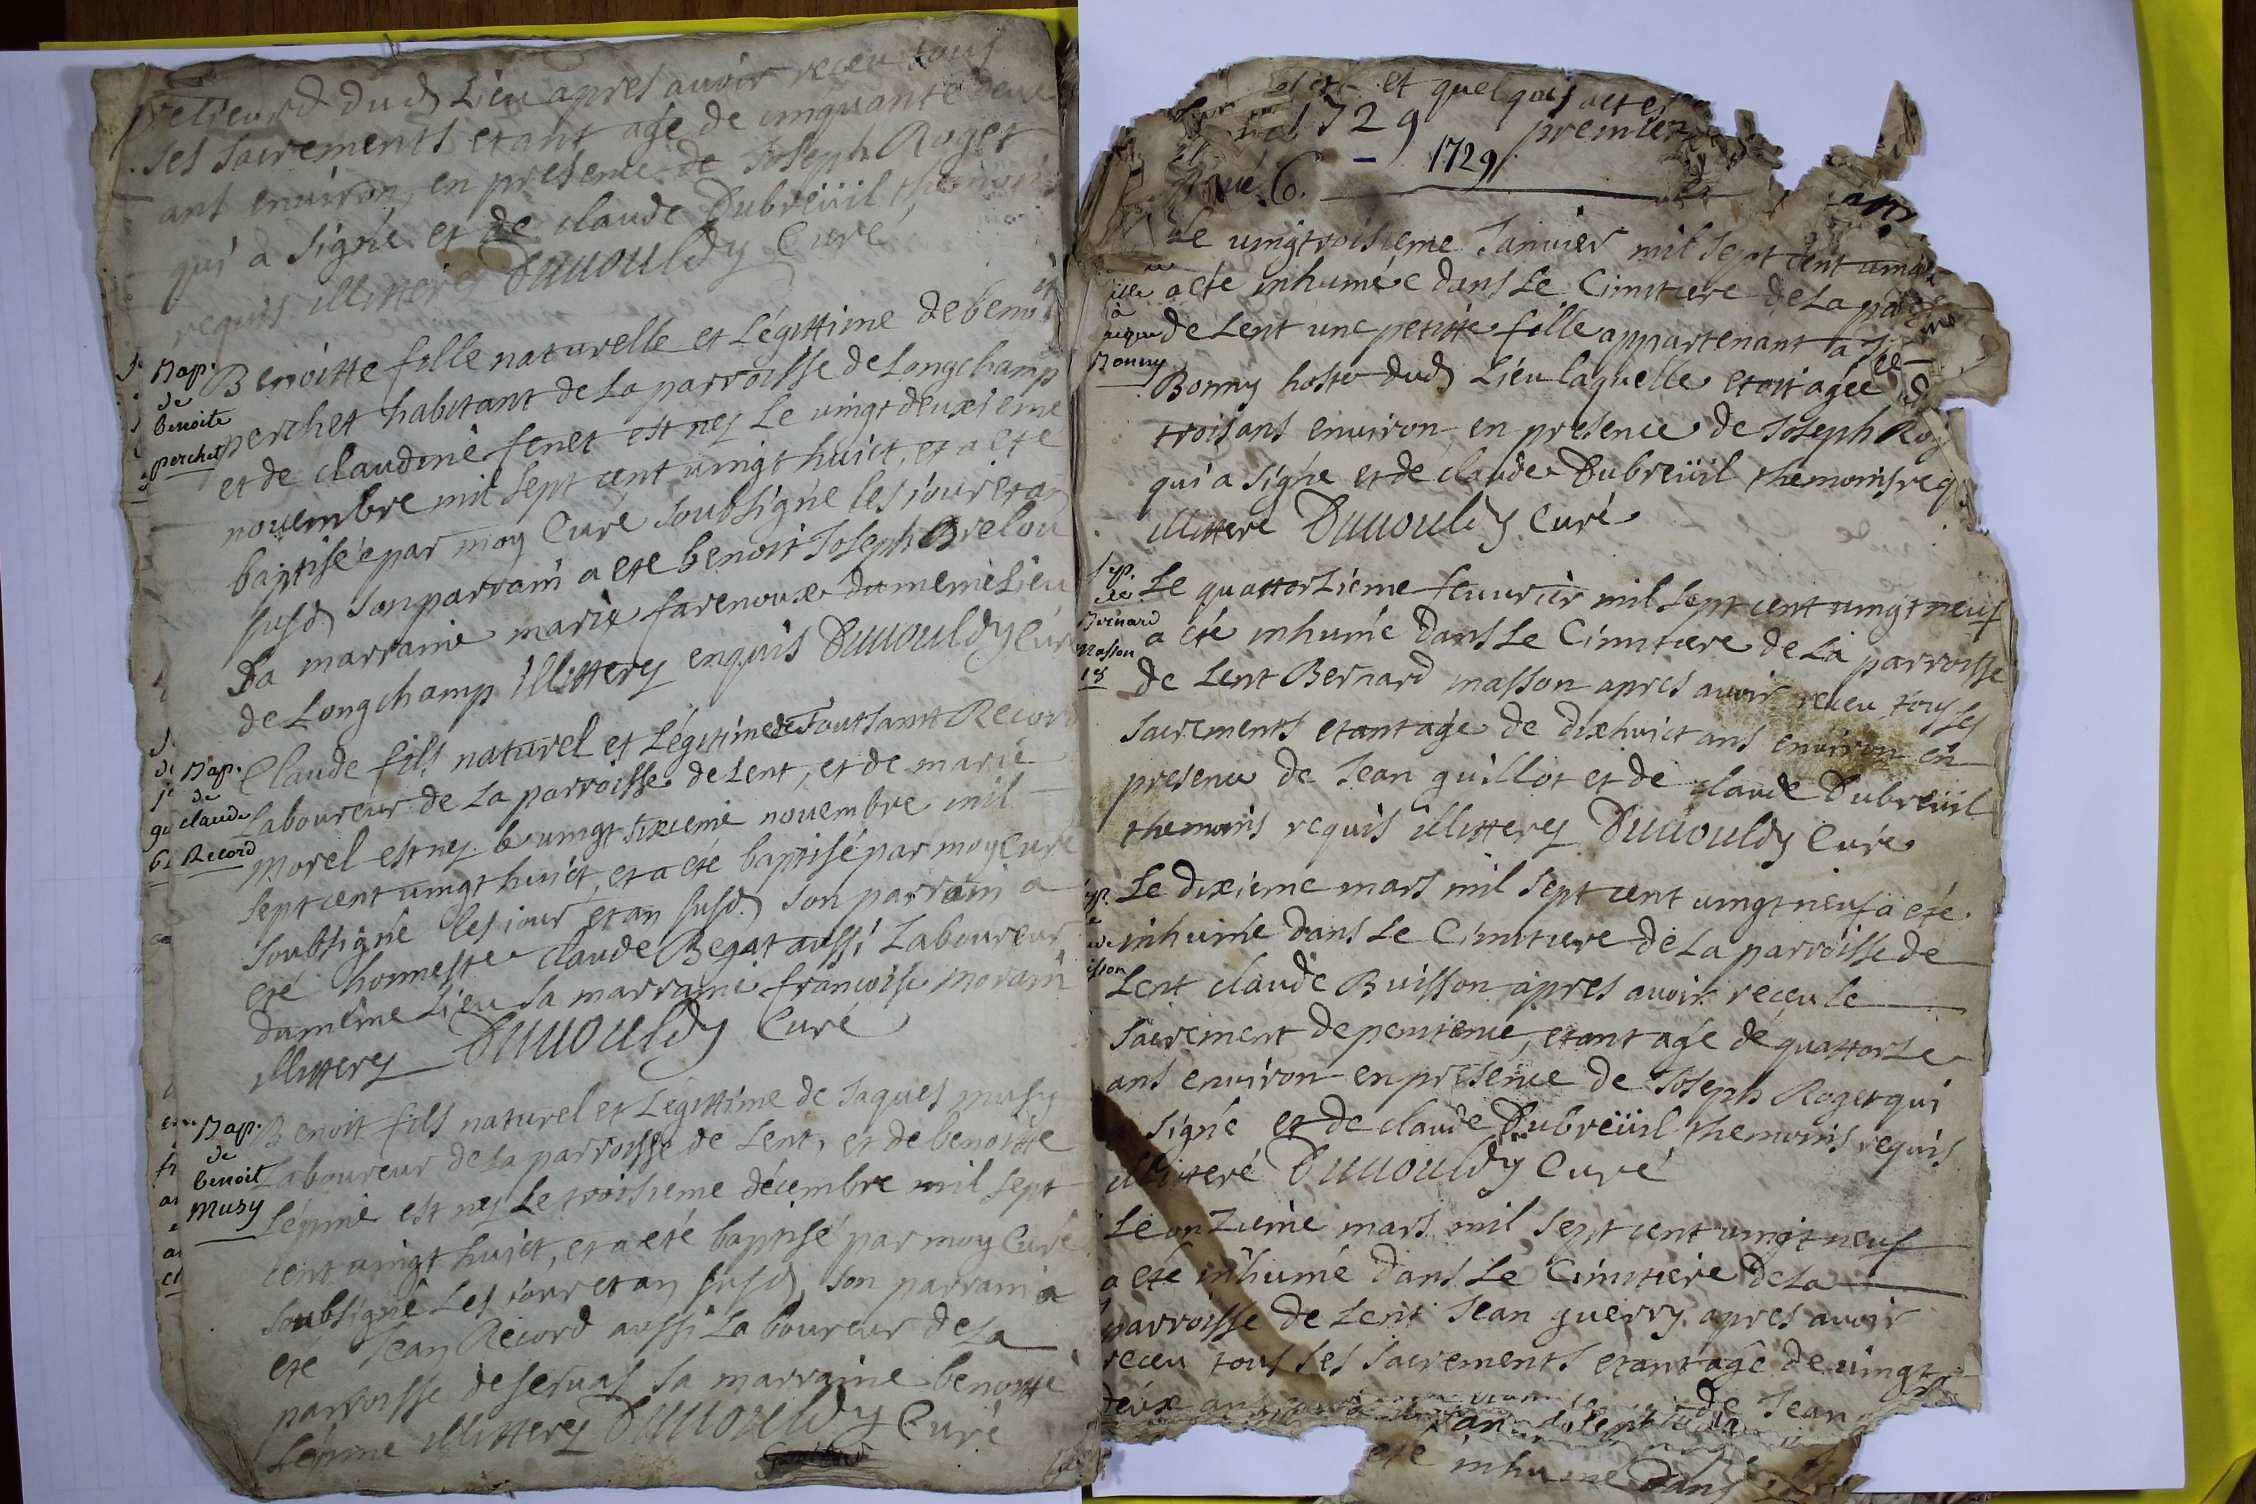 dud Lieu apres avoir receu tous
ses sacrements etant agé de cinquante deux
ans environ, en presence de Joseph Roget
qui a signé et de claude Dubreüil themoins
requis illitterés Duuouldy Curé
Bap.
de
benoite
perchet
Benoitte fille naturelle et Légittime de benoit
perchet habitant de la parroisse de Longchamp
et de claudine fenet est neé Le vingt deuxieme
novembre mil sept cent vingt huict, et a eté
baptiseé par moy Curé soubsigné les jour et an
susd. son parrain a eté benoit Joseph Brelou
sa marraine marie farenoux du meme Lieu
de Longchamp illitterés enquis Duuouldy Curé
Bap.
de
claude
Record
Claude fils naturel et Légitime de Toutsaint Record
Laboureur de la parroisse de Lent, et de marie
morel est neé le vingt sixieme novembre mil
sept cent vingt huict, et a eté baptisé par moy Curé
soubsigné les jour et an susd. son parrain a
eté honneste claude Begat aussi Laboureur
du même Lieu sa marraine françoise morain
illitterés Duuouldy Curé
Bap.
de
benoit
Musy
Benoit fils naturel et Légittime de Jaques musy
Laboureur de la parroisse de Lent, et de benoitte
Lépine est neé Le troisieme décembre mil sept
cent vingt huict, et a eté baptisé par moy Curé
soubsigné Les jour et an susd, son parrain a
eté Jean Record aussi Laboureur de la
parroisse de servas sa marraine benoitte
Lépine illitterés Duuouldy Curé
et quelques actes
1729 premier
1729
Le vingtroisieme Janvier mil sept cent vingt
a eté inhumée dans Le Cimitiere de La
de Lent une petitte fille appartenant a
Bonny
Bonny hoste dud. Lieu laquelle etoit ageé de
trois ans environ en presence de Joseph Rog
qui a signé et de claude Dubreüil themoins req
illitteré Duuouldy Curé
Sep.
de
Bernard
Masson
18
Le quattorzieme feuvrier mil sept cent vingt neuf
a eté inhumé dans Le Cimitiere de La parroisse
de Lent Bernard masson apres avoir receu tous ses
sacrements etant agé de dixhuict ans environ en
presence de Jean guillot et de claude Dubreüil
themoins requis illitterés Duuouldy Curé
Le dixieme mars mil sept cent vingt neuf a eté
inhumé dans Le Cimitiere de La parroisse de
Lent claude Buisson apres avoir receu le
sacrement de penitence, etant agé de quattorze
ans environ en presence de Joseph Roget qui
signé et de claude Dubreüil themoins requis
illitteré Duuouldy Curé
Le onzieme mars mil sept cent vingt neuf
a eté inhumé dans Le Cimitiere de La
parroisse de Lent Jean guerry apres avoir
receu tous ses sacrements etant agé de vingt
deux ans de Jean
eté inhumé dans